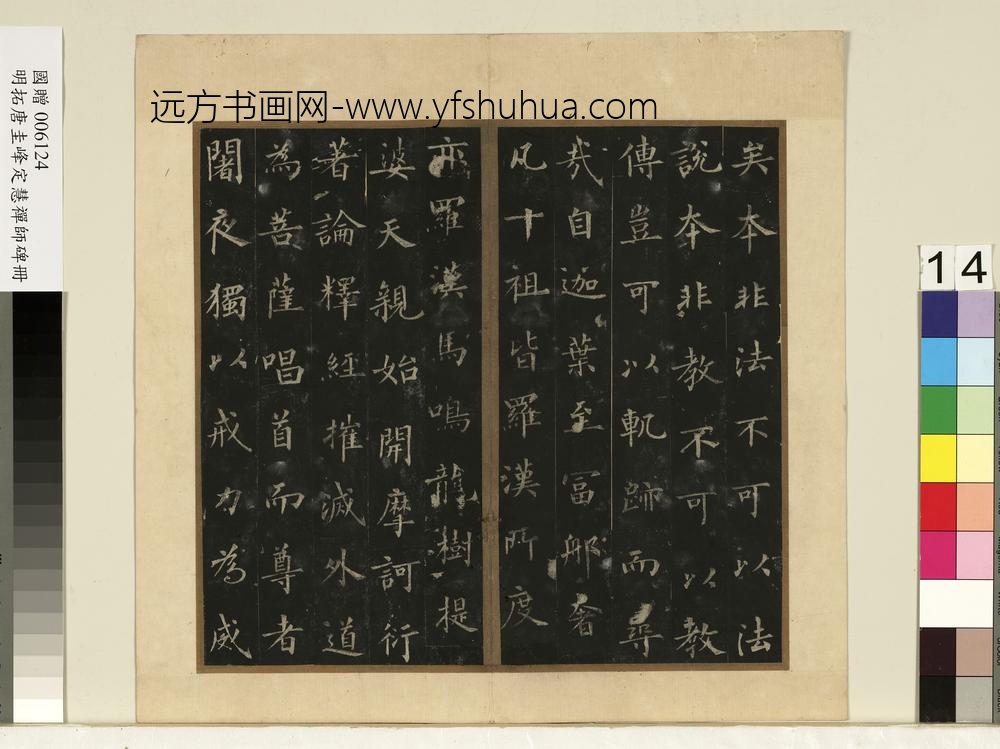 國贈 006124
明拓唐圭峰定慧禪師碑冊
远方书画网-www.yfshuhua.com
14
矣本非法不可以法
說本非教不可以教
傳豈可以軌跡而尋
哉自迦葉至冨那奢
凡十祖皆羅漢所度
亦羅漢馬鳴龍樹提
婆天親始開摩訶衍
著論釋經摧滅外道
為菩薩唱首而尊者
闍夜獨以戒力為威